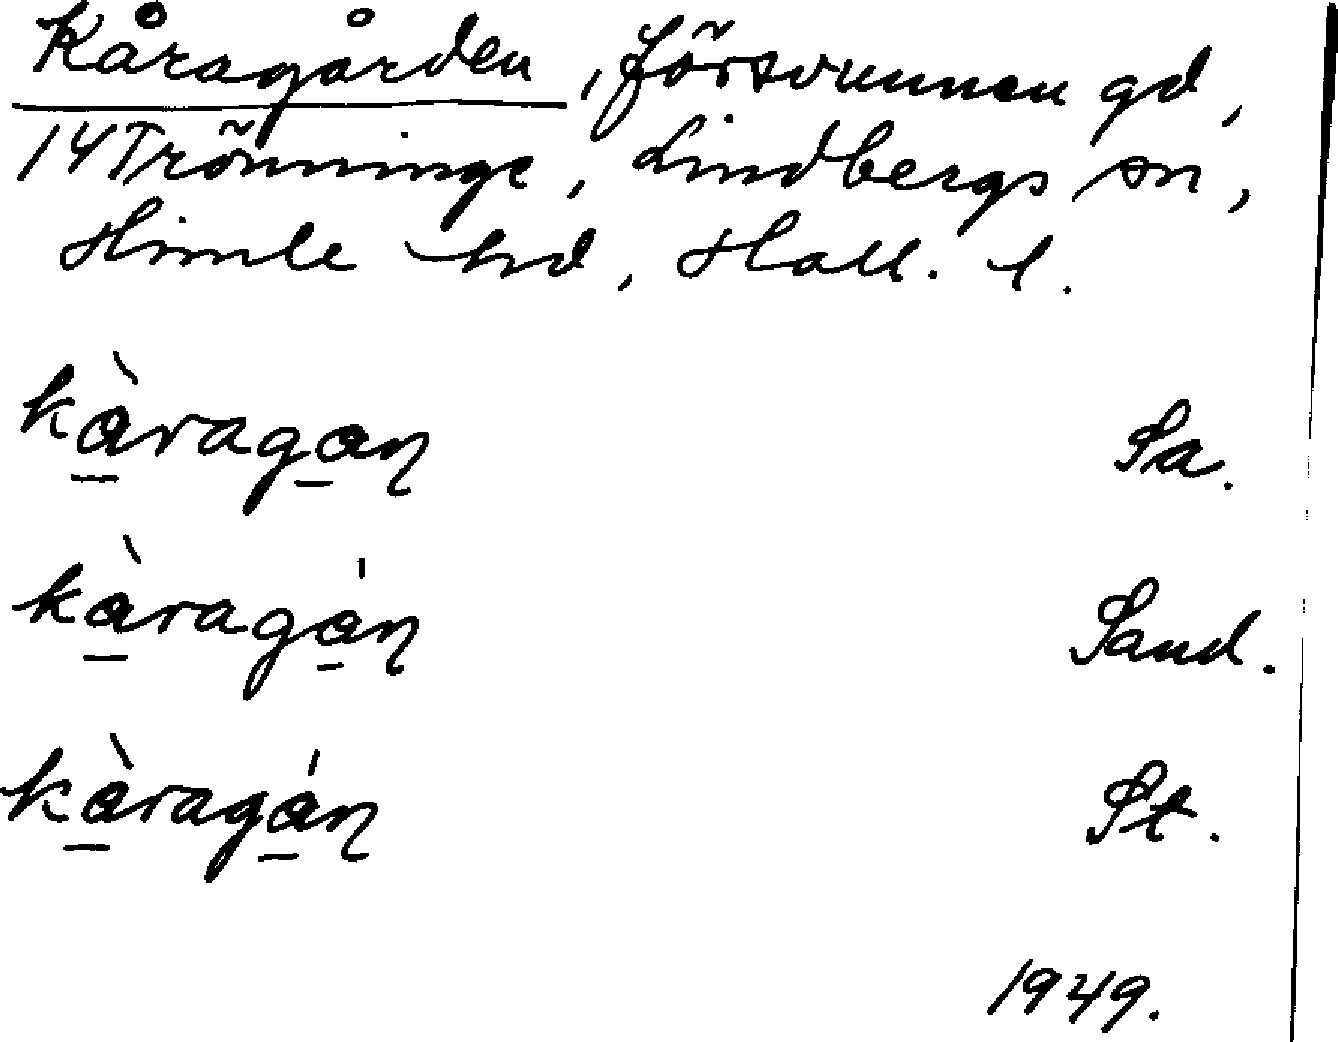 Kåragården, försvunnen gd,
14 Trönninge, Lindbergs sn,
Himle hd, Hall. l.
kàragaɳ Sa.
kàragáɳ Sand.
kàragáɳ St.
1949.